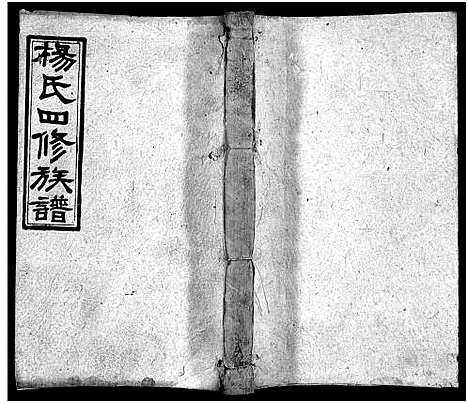 楊氏四修族譜